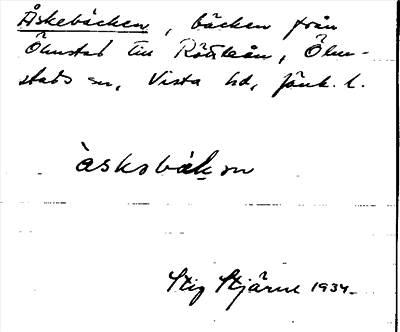 Åskebäcken, bäcken från
Ölmstad till Röttleån, Ölm-
stads sn, Vista hd, Jönk. l.
àskəbäkən
Stig Stjärne 1934